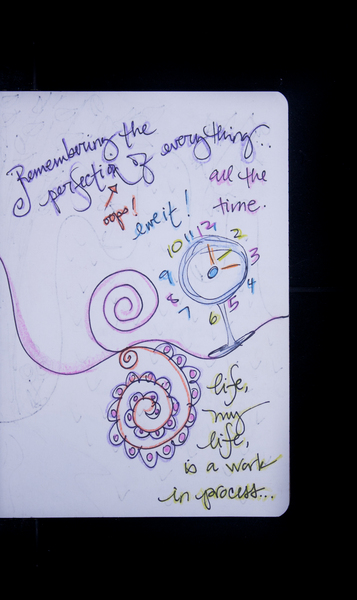 Remembering the
perfection of everything...
all the
time.
oops!
love it!
12
11
10
9
8
7
6
5
4
3
2
life,
my
life,
is a work
in process...